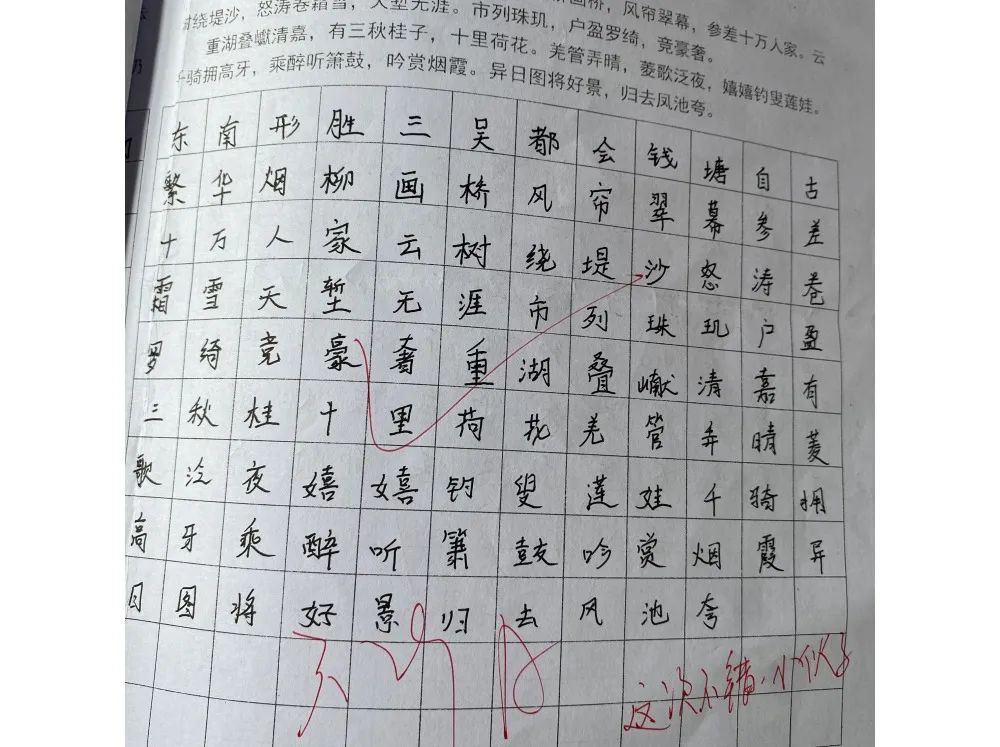 画桥，风帘翠幕，参差十万人家。云
树绕堤沙，怒涛卷霜雪，天堑无涯。市列珠玑，户盈罗绮，竞豪奢。
重湖叠巘清嘉，有三秋桂子，十里荷花。羌管弄晴，菱歌泛夜，嬉嬉钓叟莲娃。
千骑拥高牙，乘醉听箫鼓，吟赏烟霞。异日图将好景，归去凤池夸。
东南形胜三吴都会钱塘自古
繁华烟柳画桥风帘翠幕参差
十万人家云树绕堤沙怒涛卷
霜雪天堑无涯市列珠玑户盈
罗绮竞豪奢重湖叠巘清嘉有
三秋桂十里荷花羌管弄晴菱
歌泛夜嬉嬉钓叟莲娃千骑拥
高牙乘醉听箫鼓吟赏烟霞异
日图将好景归去风池夸
这次不错，小伙子